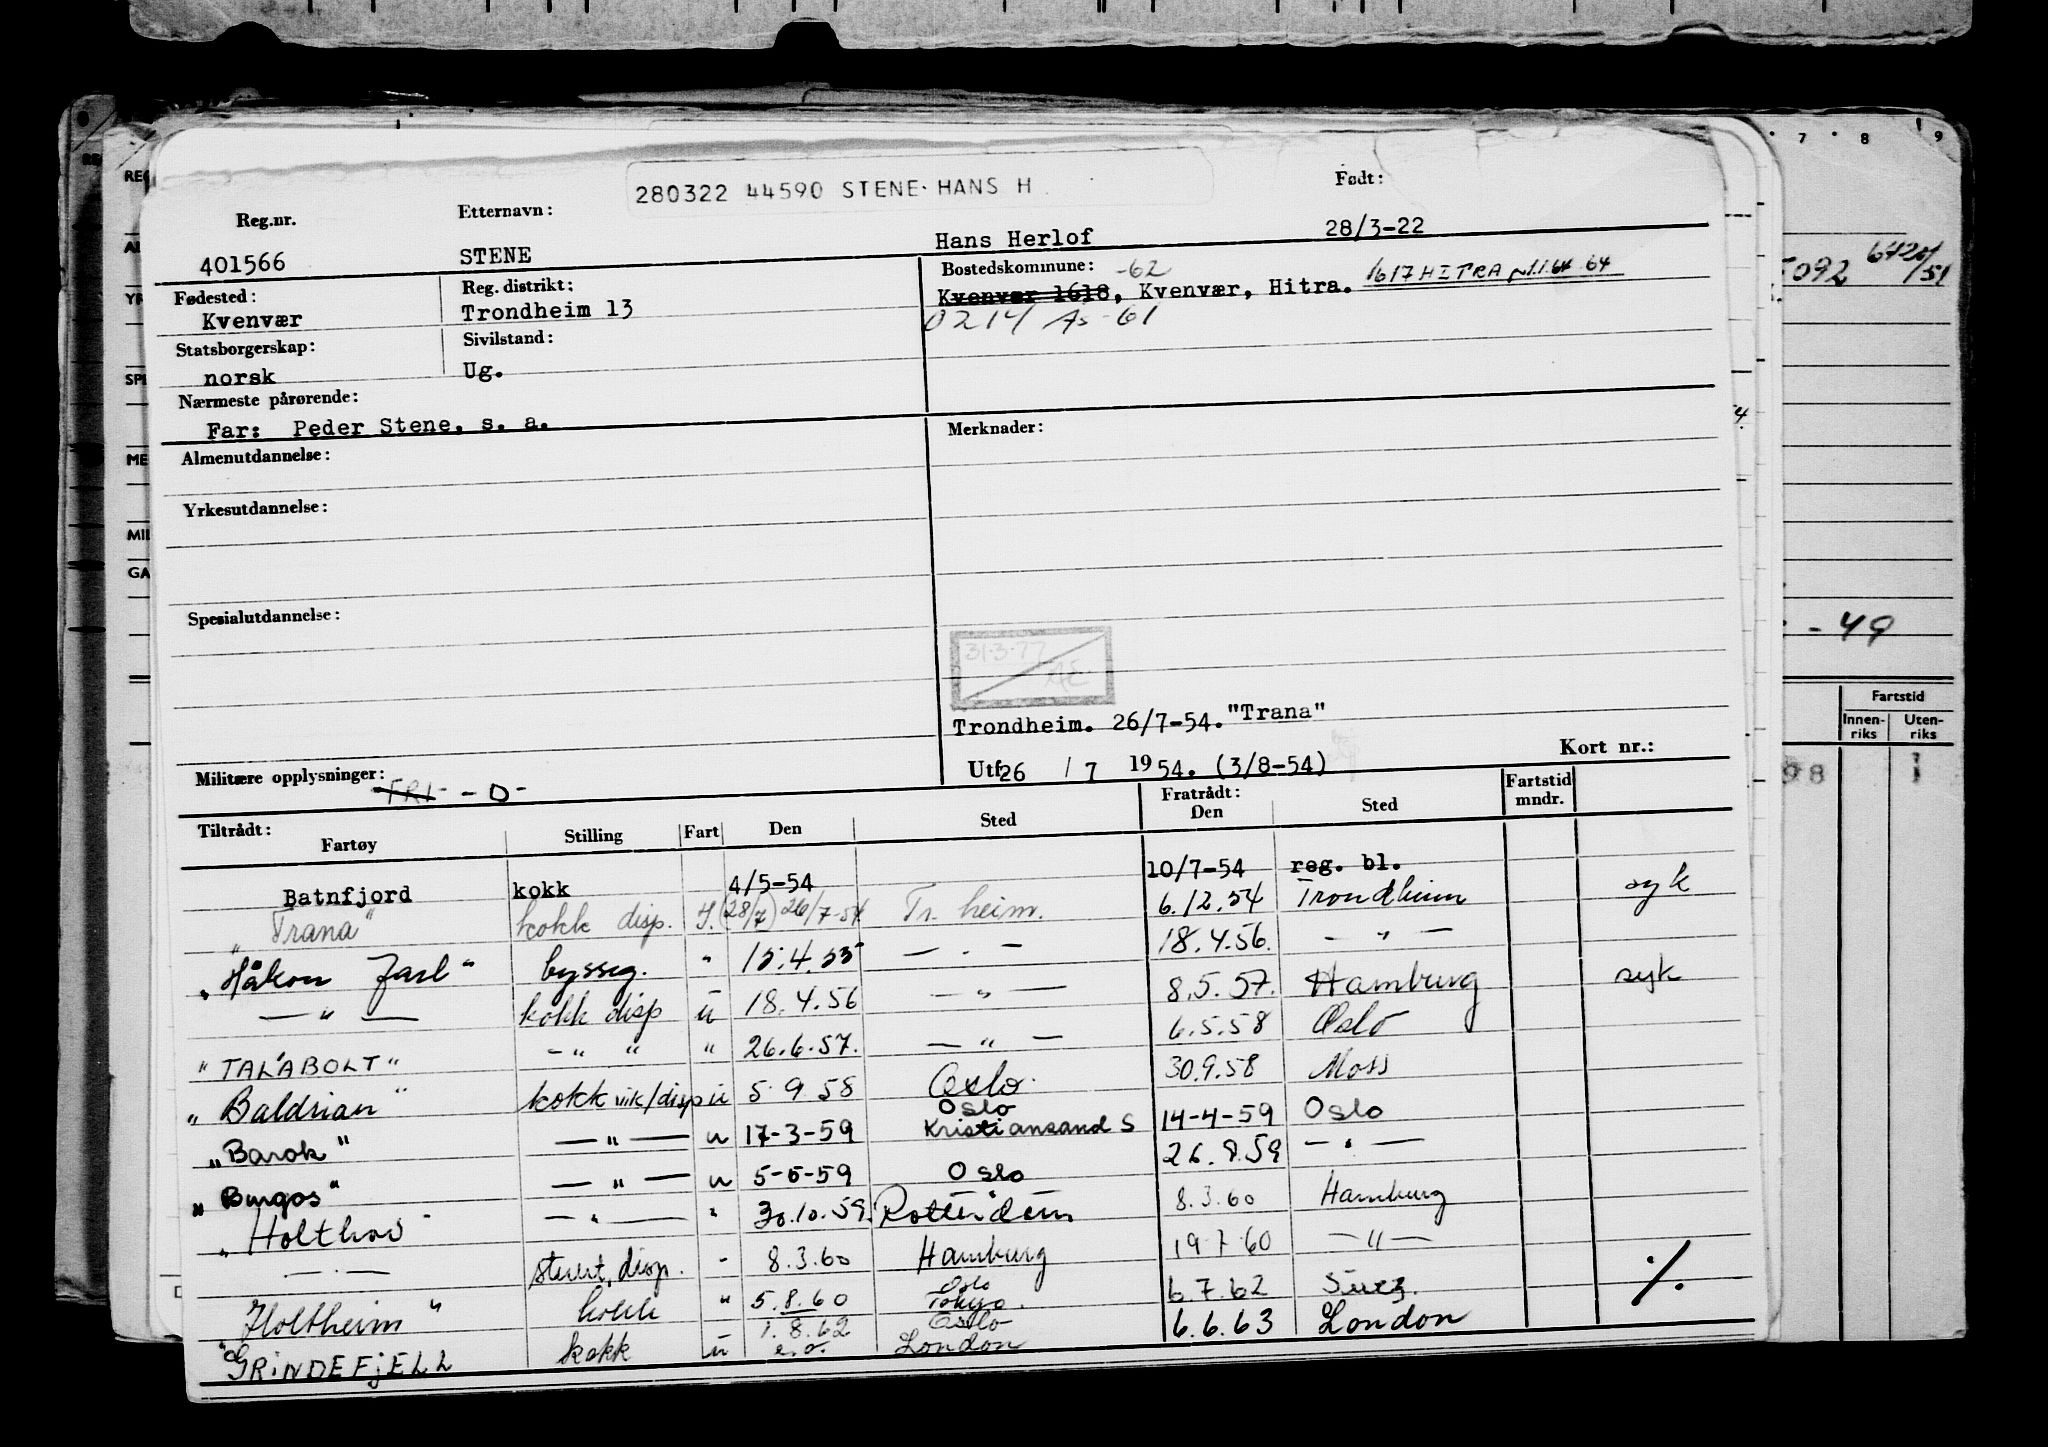 280322 44590 STENE HANS H
Reg.nr. Etternavn: Født:
401566 STENE Hans Herlof 28/3-22
Fødested: Reg. distrikt: Bostedskommune: -62
Kvenvær Trondheim 13 Kvenvær 1618, Kvenvær, Hitra. 1617 HITRA 1.1.64 64
0214 Ås -61
Statsborgerskap: Sivilstand:
norsk Ug.
Nærmeste pårørende:
Far: Peder Stene, s. a.
Almenutdannelse: Merknader:
Yrkesutdannelse:
Spesialutdannelse:
31.3.77
Trondheim. 26/7-54. "Trana"
Utf. 26 / 7 1954. (3/8-54) Kort nr.:
Militære opplysninger: FRI - D -
Tiltrådt: Fratrådt: Fartstid
Fartøy Stilling Fart Den Sted Den Sted mndr.
Batnfjord kokk 4/5-54 10/7-54 reg. bl.
"Trana" kokk disp. I. (28/7) 26/7-54 Tr. heim. 6.12.54 Trondheim syk
"Håkon Jarl" bysseg. " 15.4.55 — " — 18.4.56. — " —
— " — kokk disp u 18.4.56 — " — 8.5.57. Hamburg syk
"TALABOLT" — " " " 26.6.57. — " — 6.5.58 Oslo
"Baldrian" kokk vik/disp u 5.9.58 Oslo 30.9.58 Moss
"Barok" — " — u 17-3-59 Oslo Kristiansand S 14-4-59 Oslo
"Burgos" — " — u 5-5-59 Oslo 26.8.59 — " —
"Holthav" — " — " 30.10.59. Rotterdam 8.3.60 Hamburg
— " — stuert disp. - 8.3.60 Hamburg 19.7.60 — " —
"Holtheim" kokk " 5.8.60 Oslo Tokyo. 6.7.62 Suez. ./.
"GRINDEFJELL kokk u 1.8.62 e.o. Oslo London 6.6.63 London
7 8 9
5092 6420/51
- 49
Fartstid
Innen-riks Uten-riks
98 1